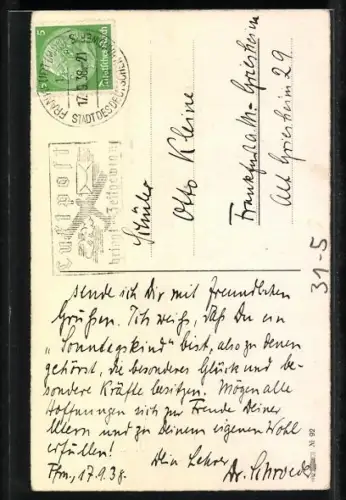 5
Deutsches Reich
FRANKFURT
17.9.38-21
STADT DES DEUTSCHEN
Luftpost
Schüler
Otto Kleine
Frankfurt a. M. - Griesheim
Alt Griesheim 29
31-5
sende ich Dir mit freundlichen
Grüßen. Ich weiß, daß Du ein
„Sonntagskind" bist, also zu denen
gehörst, die besonderes Glück und be-
sondere Kräfte besitzen. Mögen alle
Hoffnungen sich zur Freude Deiner
Eltern und zu Deinem eigenen Wohl
erfüllen!
Dein Lehrer
Ffm, 17.9.38.
Dr.
№ 92